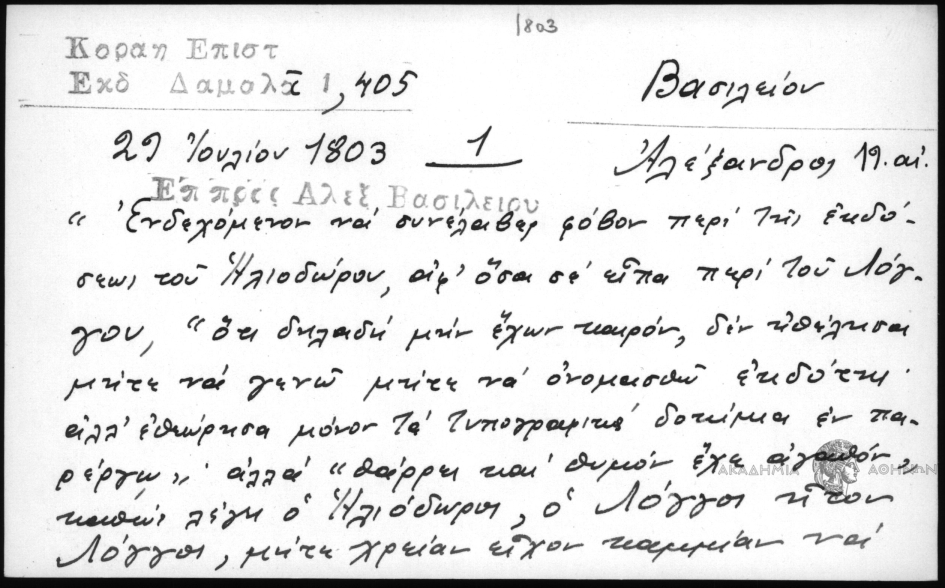 1803
Κοραη Επιστ
Εκδ Δαμαλᾶ 1, 405
Βασιλείου
29 Ἰουλίου 1803 1 Ἀλέξανδρος 19. αἰ.
Επ πρες Αλεξ Βασιλειου
“Ἐνδεχόμενον νά συνέλαβες φόβον περί τῆς ἐκδό-
σεως τοῦ Ἡλιοδώρου, ἀφ' ὅσα σέ εἶπα περί τοῦ Λόγ-
γου, “ὅτι δηλαδή μήν ἔχων καιρόν, δέν ἠθέλησα
μήτε νά γενῶ μήτε νά ὀνομασθῶ ἐκδότης·
ἀλλ' ἐθεώρησα μόνον τά τυπογραφικά δοκίμια ἐν πα-
ρέργῳ”· ἀλλά “θάρρει καί θυμόν ἔχε ἀγαθόν”,
ΑΚΑΔΗΜΙΑ ΑΘΗΝΩΝ
καθώς λέγει ὁ Ἡλιόδωρος, ὁ Λόγγος ἦτον
Λόγγος, μήτε χρείαν εἶχον καμμίαν νά